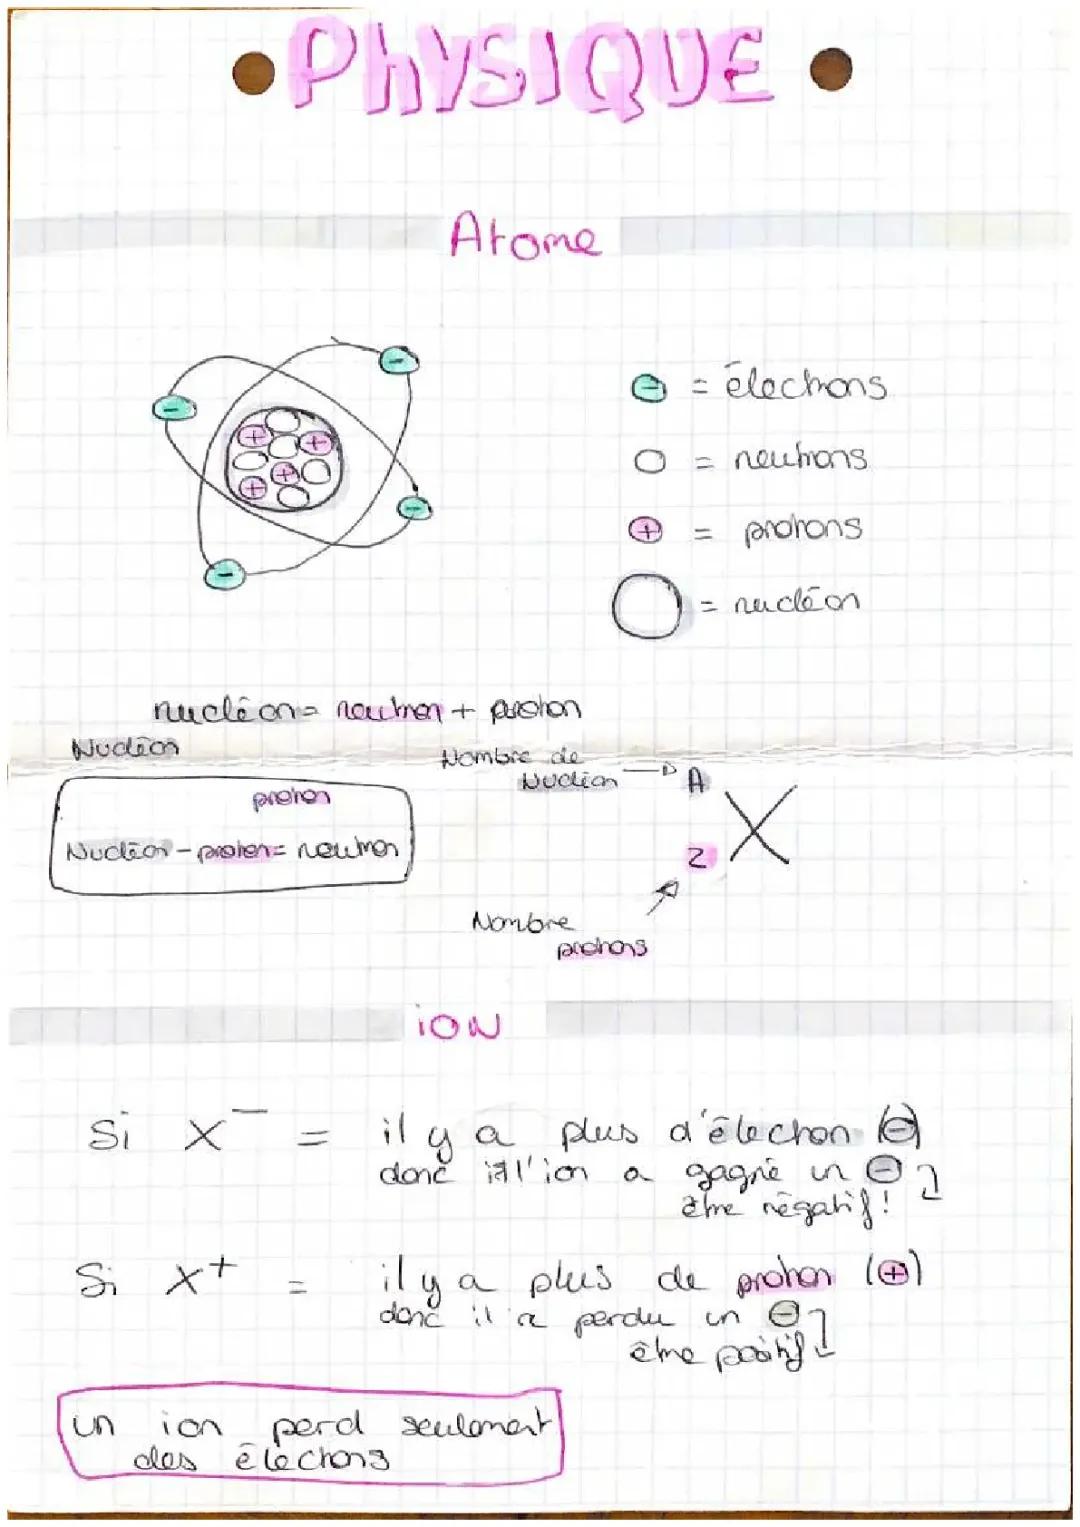 PHYSIQUE
Atome
⊖ = électrons
○ = neutrons
⊕ = protons
◯ = nucléon
nucléon = neutron + proton
Nucléon
proton
Nucléon - proton = neutron
Nombre de
Nucléon → A
X
Z
Nombre
protons
ion
Si X⁻ = il y a plus d'électron (⊖)
donc l'ion a gagné un ⊖
être négatif !
Si X⁺ = il y a plus de proton (⊕)
donc il a perdu un ⊖
être positif
un ion perd seulement
des électrons